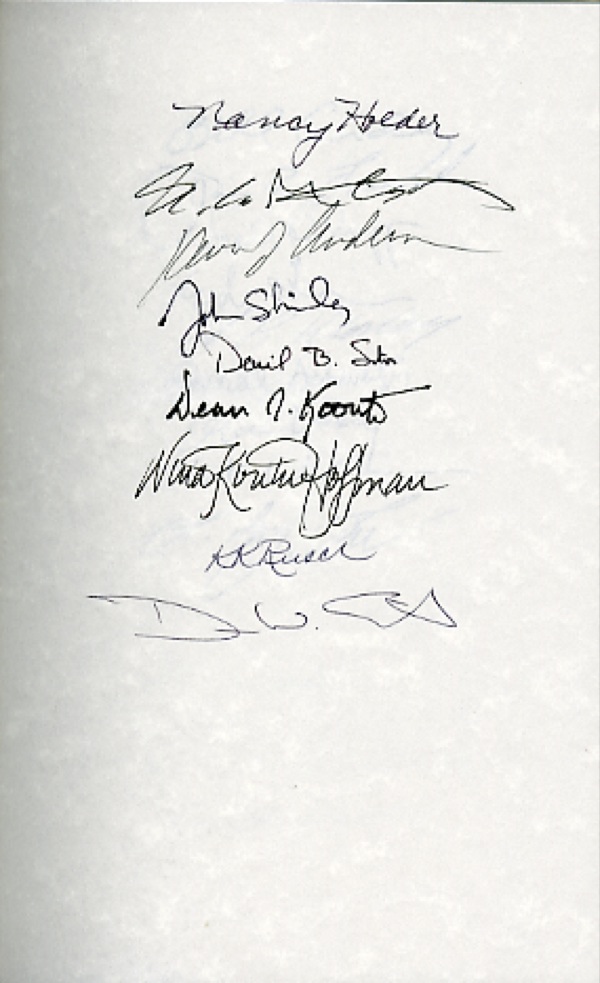 Nancy Holder
Kevin J Anderson
John Shirley
David B.
Dean R. Koontz
Nina Kiriki Hoffman
KKRusch
D W.